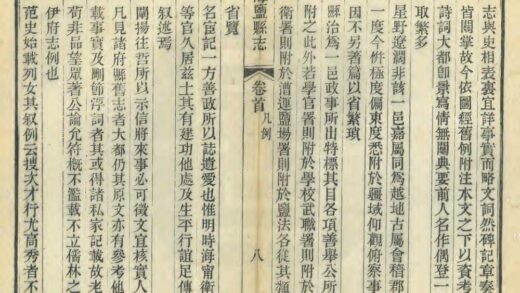 志與史相表裏宜詳事實而略文詞然碑記章奏
皆關掌故今依圖經舊例附注本文之下以資考
詩詞大都卽景寫情無關典要前人名作偶登一
取繁多
星野遼濶非該一邑嘉屬同爲越地古屬會稽郡
一度今極度偏東度悉附於疆域仰觀俯察事
因不另著篇以省繁瑣
縣治爲一邑政事所出特標其目各項善舉公所
附之此外若學官署則附於學校武職署則附於
衞署則附於漕運鹽場署則附於鹽法各從其類
鹽縣志
卷首
凡例
八
省覽
名宦記一方善政所以誌遺愛也惟明時海甯衞
等官久居茲土其有建功他處及生平行誼足傳
敘述焉
闡揚往哲所以示信將來事必可徵文宜核實人
凡見諸府縣舊志者大都仍其原文亦有參考他
載事實及刪節浮詞者其或得諸私家記載故老
苟非品望眾著公論允符槪不濫載不立儒林之
伊府志例也
范史始載列女其敘例云搜次才行尤高秀者不